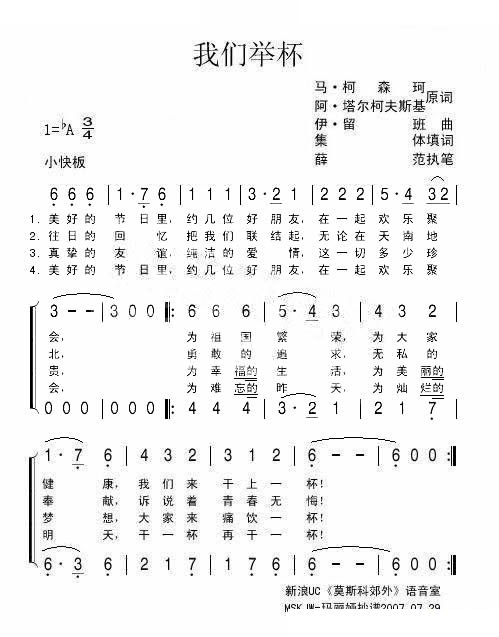 我们举杯
马·柯森珂
阿·塔尔柯夫斯基 原词
1=♭A 3/4
伊·留班曲
集体填词
小快板
薛范执笔
6 6 6 | 1·7 6 | 1 1 1 | 3·2 1 | 2 2 2 | 5·4 32 |
1. 美好的 节日里，约几位 好朋友，在一起 欢乐聚
2. 往日的 回忆 把我们 联结起，无论在 天南地
3. 真挚的 友谊，纯洁的 爱情，这一切 多少珍
4. 美好的 节日里，约几位 好朋友，在一起 欢乐聚
3 - - | 3 0 0 |: 6 6 6 | 5·4 3 | 4 3 2 |
会， 为祖国 繁荣，为大家
北， 勇敢的 追求，无私的
贵， 为幸福的 生活，为美丽的
会， 为难忘的 昨天，为灿烂的
0 0 0 | 0 0 0 |: 4 4 4 | 3·2 1 | 2 1 7 |
1·7 6 | 4 3 2 | 3 1 2 | 6 - - | 6 0 0 :|
健康，我们来 干上一杯！
奉献，诉说着 青春无悔！
梦想，大家来 痛饮一杯！
明天，干一杯 再干一杯！
6·3 6 | 2 1 7 | 1 7 6 | 6 - - | 6 0 0 :|
新浪UC《莫斯科郊外》语音室
MSKJW-玛丽娅抄谱2007.07.29